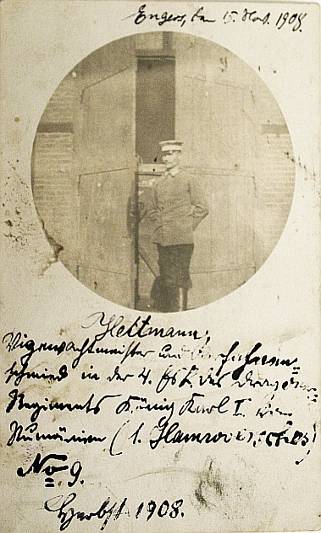 Engers, den 15. Nov. 1908.
Hettmann,
Vizewachtmeister und
schmied in der 4. Esk. des Dragoner
Regiments König Karl I. von
Rumänien (1. Hannoversches)
No. 9.
Herbst 1908.